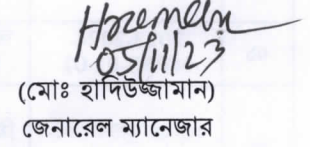 05/11/23
(মোঃ হাদিউজ্জামান)
জেনারেল ম্যানেজার